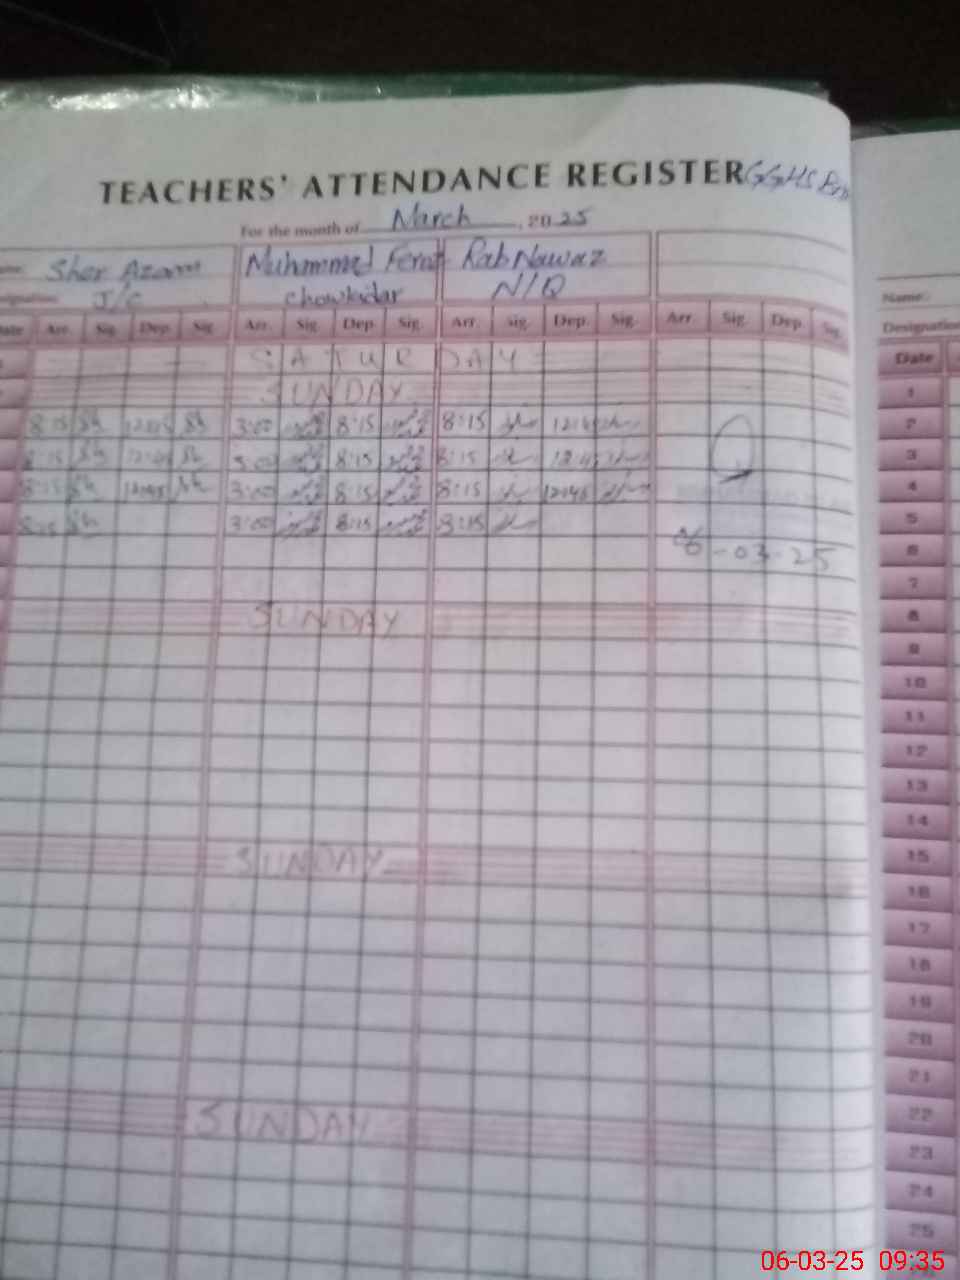 TEACHERS' ATTENDANCE REGISTER GGHS
For the month of March, 2025
Sher Azam Muhmmad Rab Nawaz
J/C Chowkidar N/Q
Name:
Designation
Date Arr. Sig. Dep. Sig. Arr. Sig. Dep. Sig. Arr. Sig. Dep. Sig. Arr. Sig. Dep. Sig.
Date
SATURDAY
SUNDAY
8:15 12:45 3:00 8:15 8:15 12:45
8:15 12:45 3:00 8:15 8:15 12:45
8:15 12:45 3:00 8:15 8:15 12:45
8:15 3:00 8:15 8:15
06-03-25
SUNDAY
SUNDAY
SUNDAY
1
2
3
4
5
6
7
8
9
10
11
12
13
14
15
16
17
18
19
20
21
22
23
24
25
06-03-25 09:35